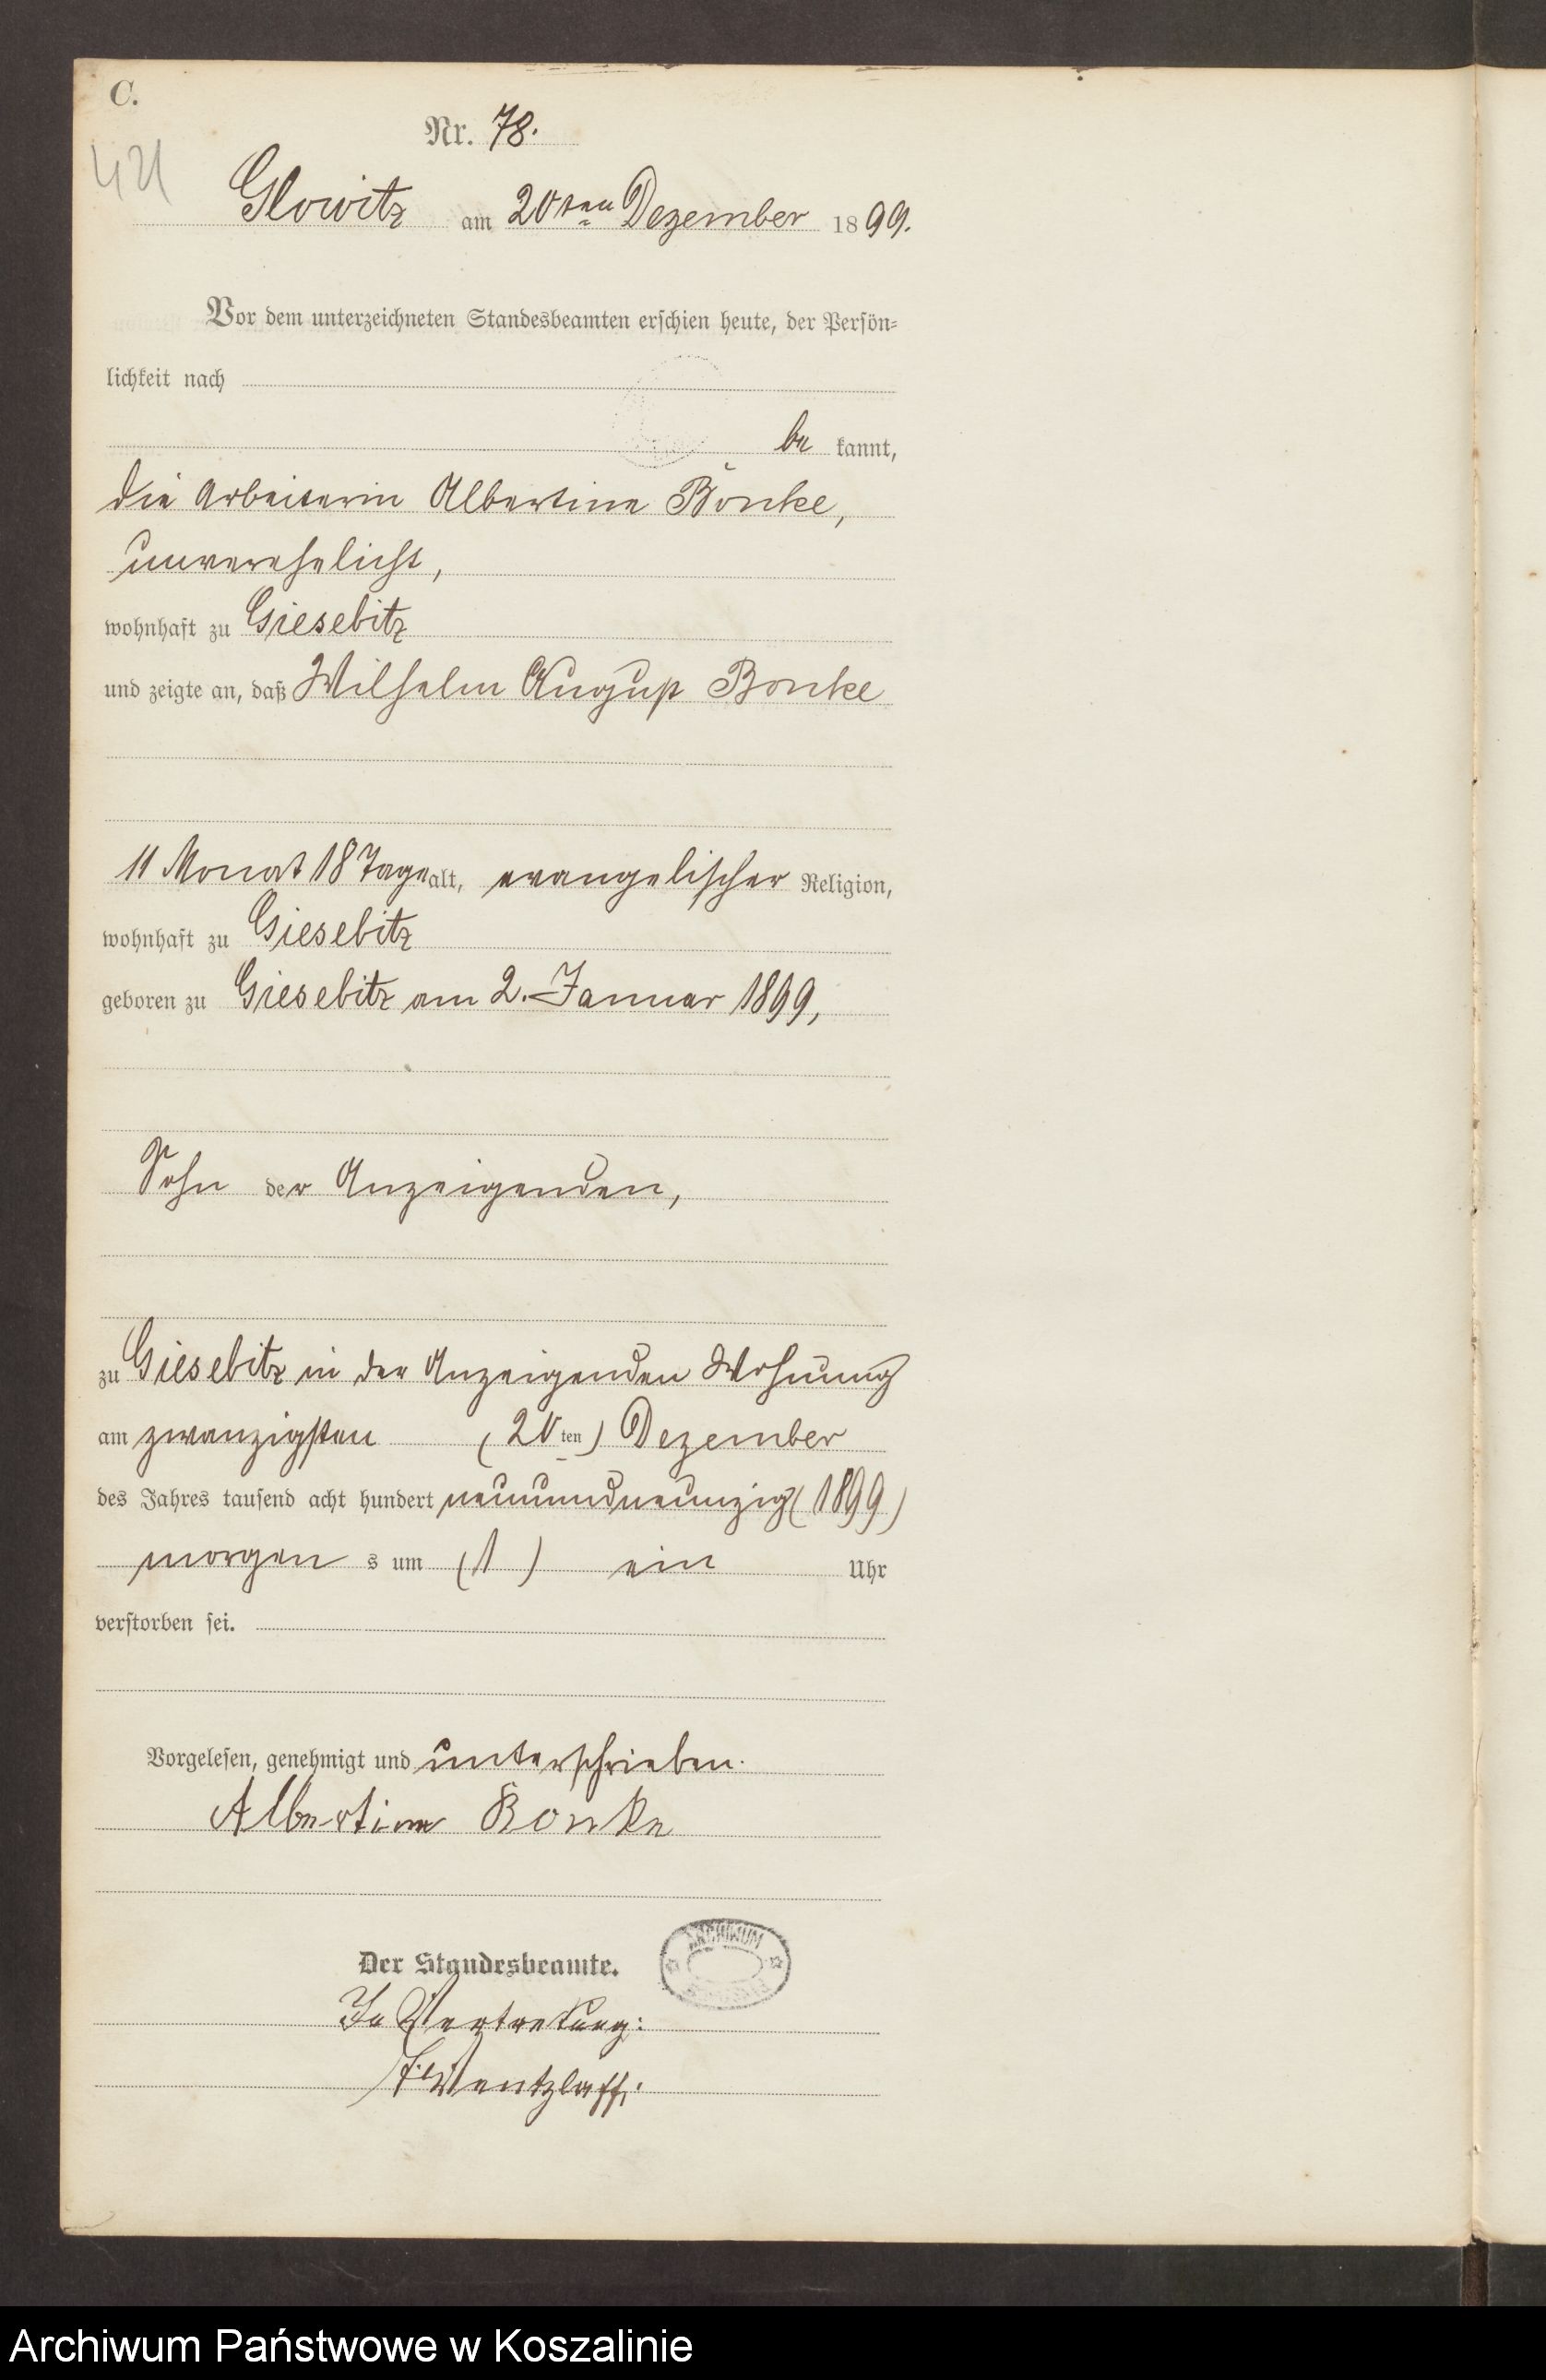 C.
Nr. 78.
421
Glowitz am 20ten Dezember 1899.
Vor dem unterzeichneten Standesbeamten erschien heute, der Persön-
lichkeit nach
be kannt,
die Arbeiterin Albertine Bonke,
unverehelicht,
wohnhaft zu Giesebitz
und zeigte an, daß Wilhelm August Bonke
11 Monat 18 Tage alt, evangelischer Religion,
wohnhaft zu Giesebitz
geboren zu Giesebitz am 2. Januar 1899,
Sohn der Anzeigenden,
zu Giesebitz in der Anzeigenden Wohnung
am zwanzigsten (20ten) Dezember
des Jahres tausend acht hundert neunundneunzig (1899)
morgen s um (1) ein Uhr
verstorben sei.
Vorgelesen, genehmigt und unterschrieben.
Albertine Bonke
Der Standesbeamte.
ARCHIWUM
In Vertretung:
Wentzlaff.
Archiwum Państwowe w Koszalinie